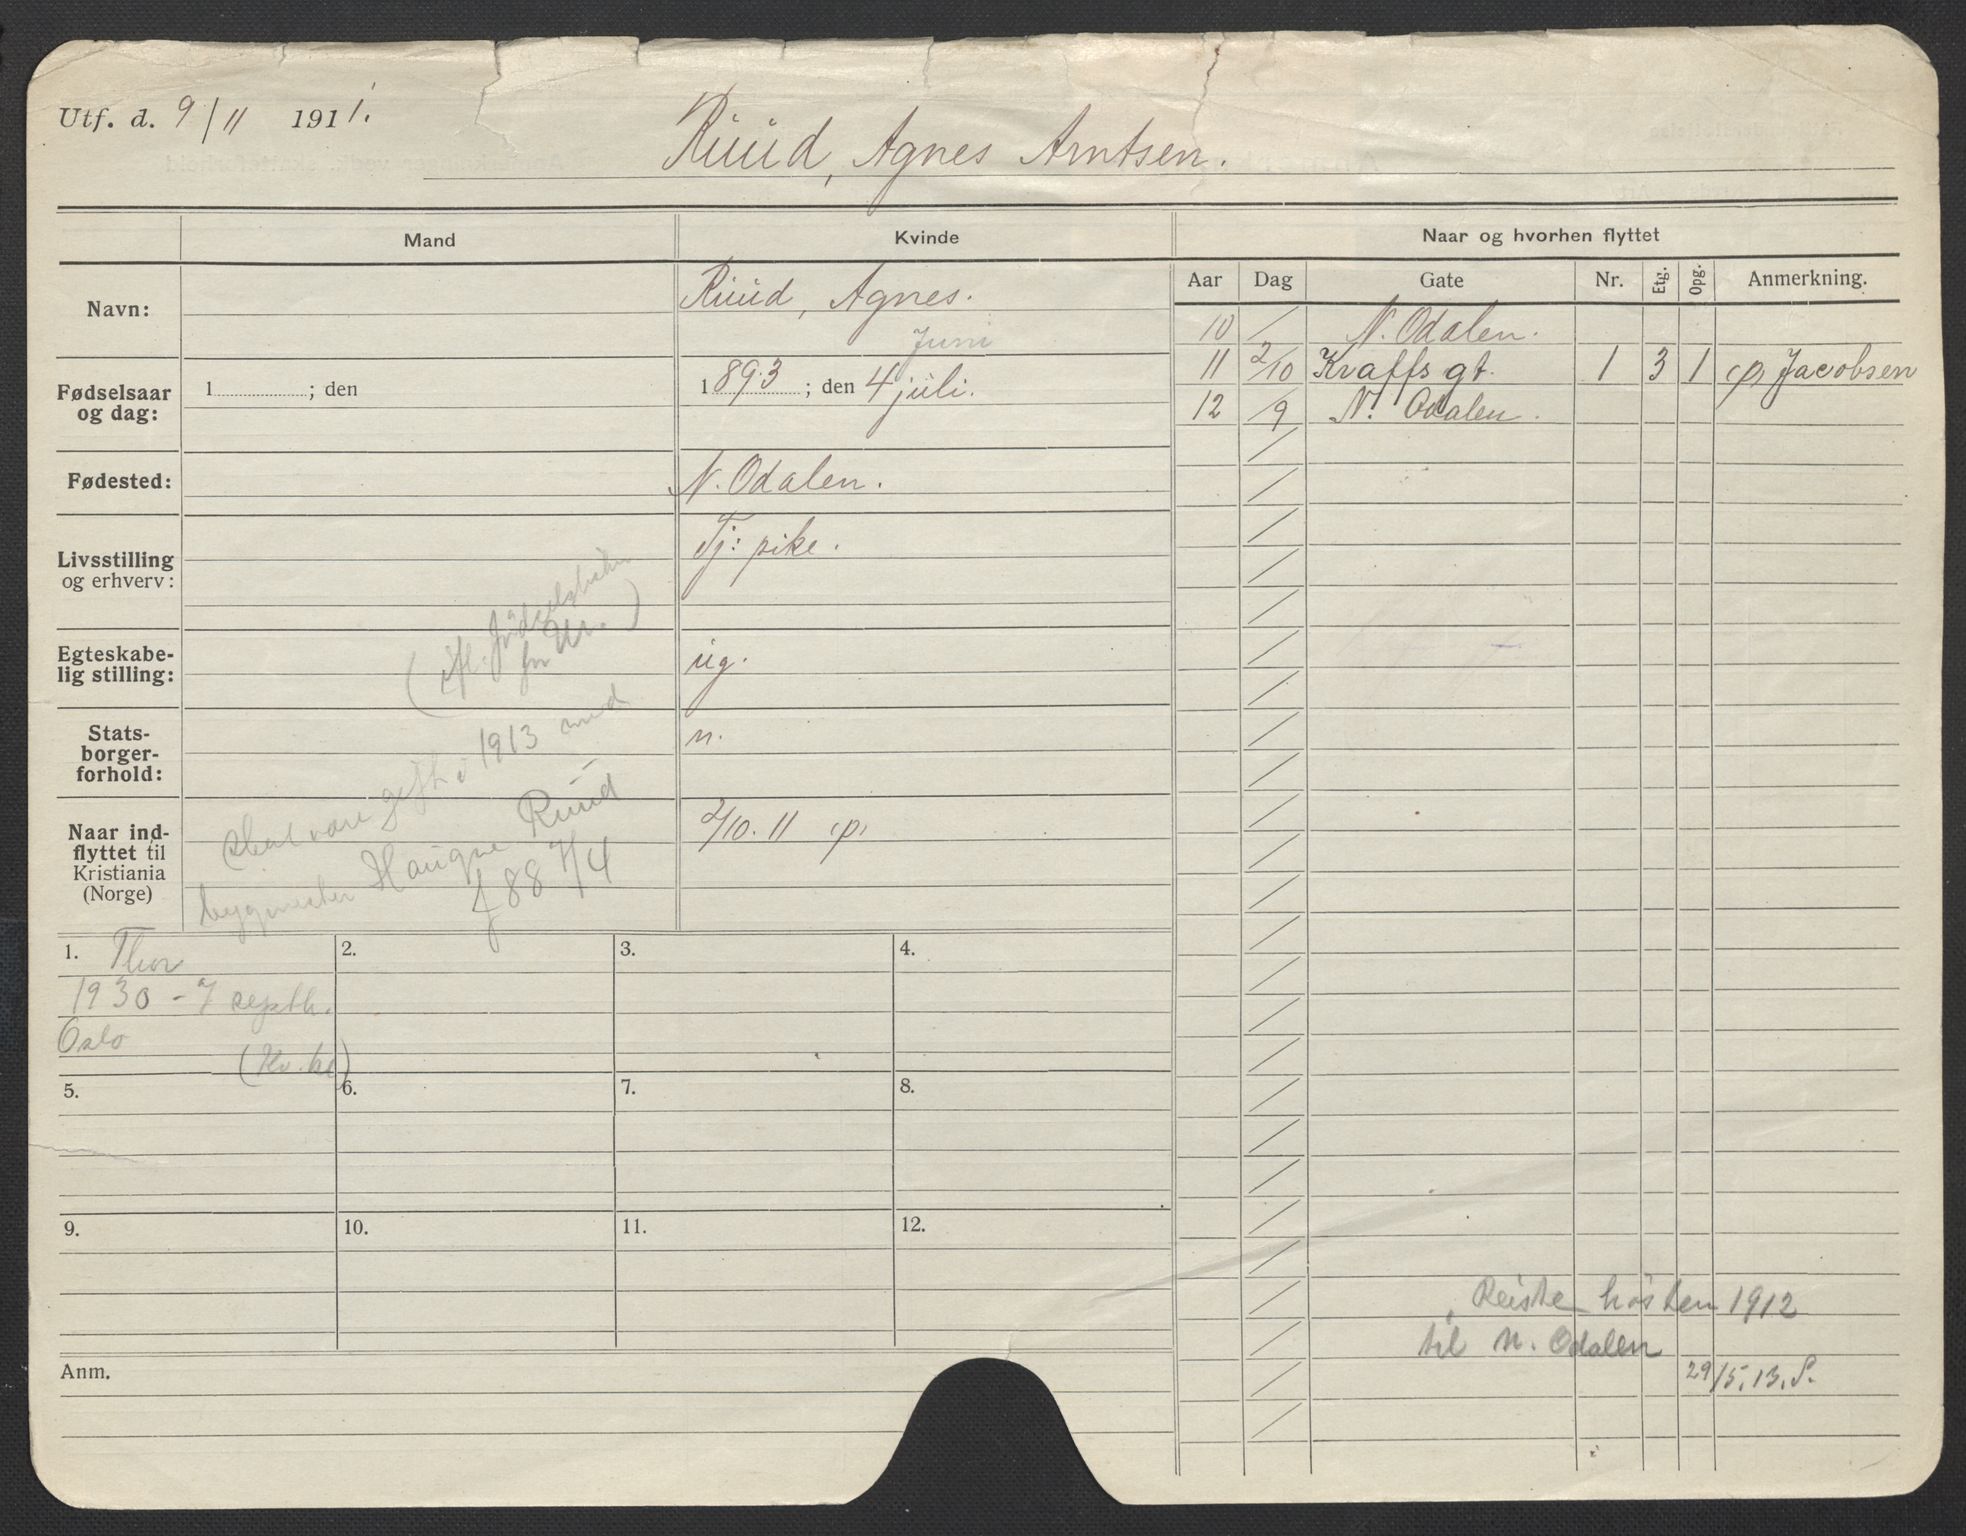 Utf. d. 9/11 1911.
Ruud, Agnes Arntsen.
Mand Kvinde Naar og hvorhen flyttet
Aar Dag Gate Nr. Etg. Opg. Anmerkning.
Navn: Ruud, Agnes.
10 / N. Odalen.
11 2/10 Kraffs gt. 1 3 1 (p) Jacobsen
12 /9 N. Odalen.
Juni
Fødselsaar og dag: 1 ; den 1893 ; den 4 juli.
Fødested: N. Odalen.
Livsstilling og erhverv: Tj: pike.
Egteskabe-
lig stilling: ug.
Stats-
borger-
forhold: n.
Naar ind-
flyttet til
Kristiania
(Norge) 2/10. 11 (p)
for
skal være gift i 1913 med
bygmester Haugne Ruud
f 88 7/4
1. Thor
1930 - 7 septb.
Oslo
2.
3.
4.
5.
6.
7.
8.
9.
10.
11.
12.
Anm.
Reiste høsten 1912
til N. Odalen
29/5. 13. S.